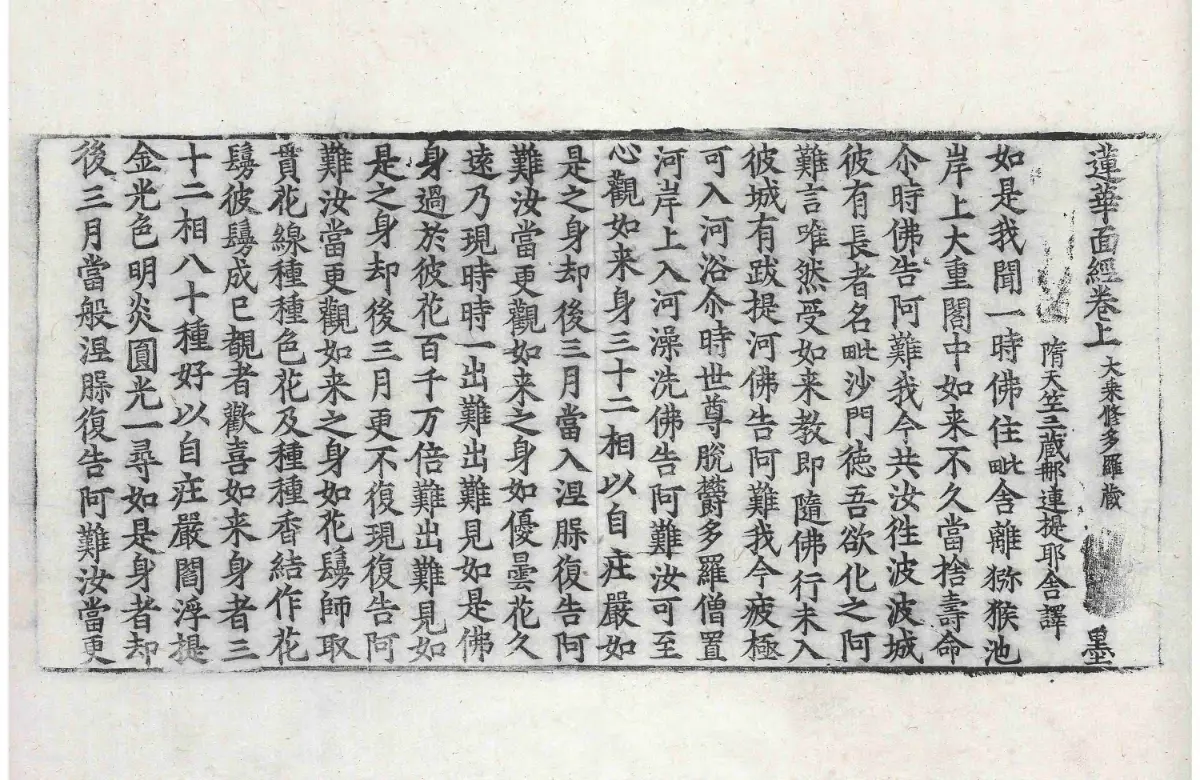 蓮華面經卷上 大乘修多羅藏 墨
隋天竺三藏那連提耶舍譯
如是我聞一時佛住毗舍離猕猴池
岸上大重閣中如来不久當捨壽命
尒時佛告阿難我今共汝徃波波城
彼有長者名毗沙門徳吾欲化之阿
難言唯然受如来教即隨佛行未入
彼城有跋提河佛告阿難我今疲極
可入河浴尒時世尊脫欝多羅僧置
河岸上入河澡洗佛告阿難汝可至
心觀如来身三十二相以自庄嚴如
是之身却後三月當入涅槃復告阿
難汝當更觀如来之身如優曇花久
遠乃現時時一出難出難見如是佛
身過於彼花百千万倍難出難見如
是之身却後三月更不復現復告阿
難汝當更觀如来之身如花鬘師取
貫花線種種色花及種種香結作花
鬘彼鬘成已覩者歡喜如来身者三
十二相八十種好以自庄嚴閻浮提
金光色明炎圓光一尋如是身者却
後三月當般涅槃復告阿難汝當更